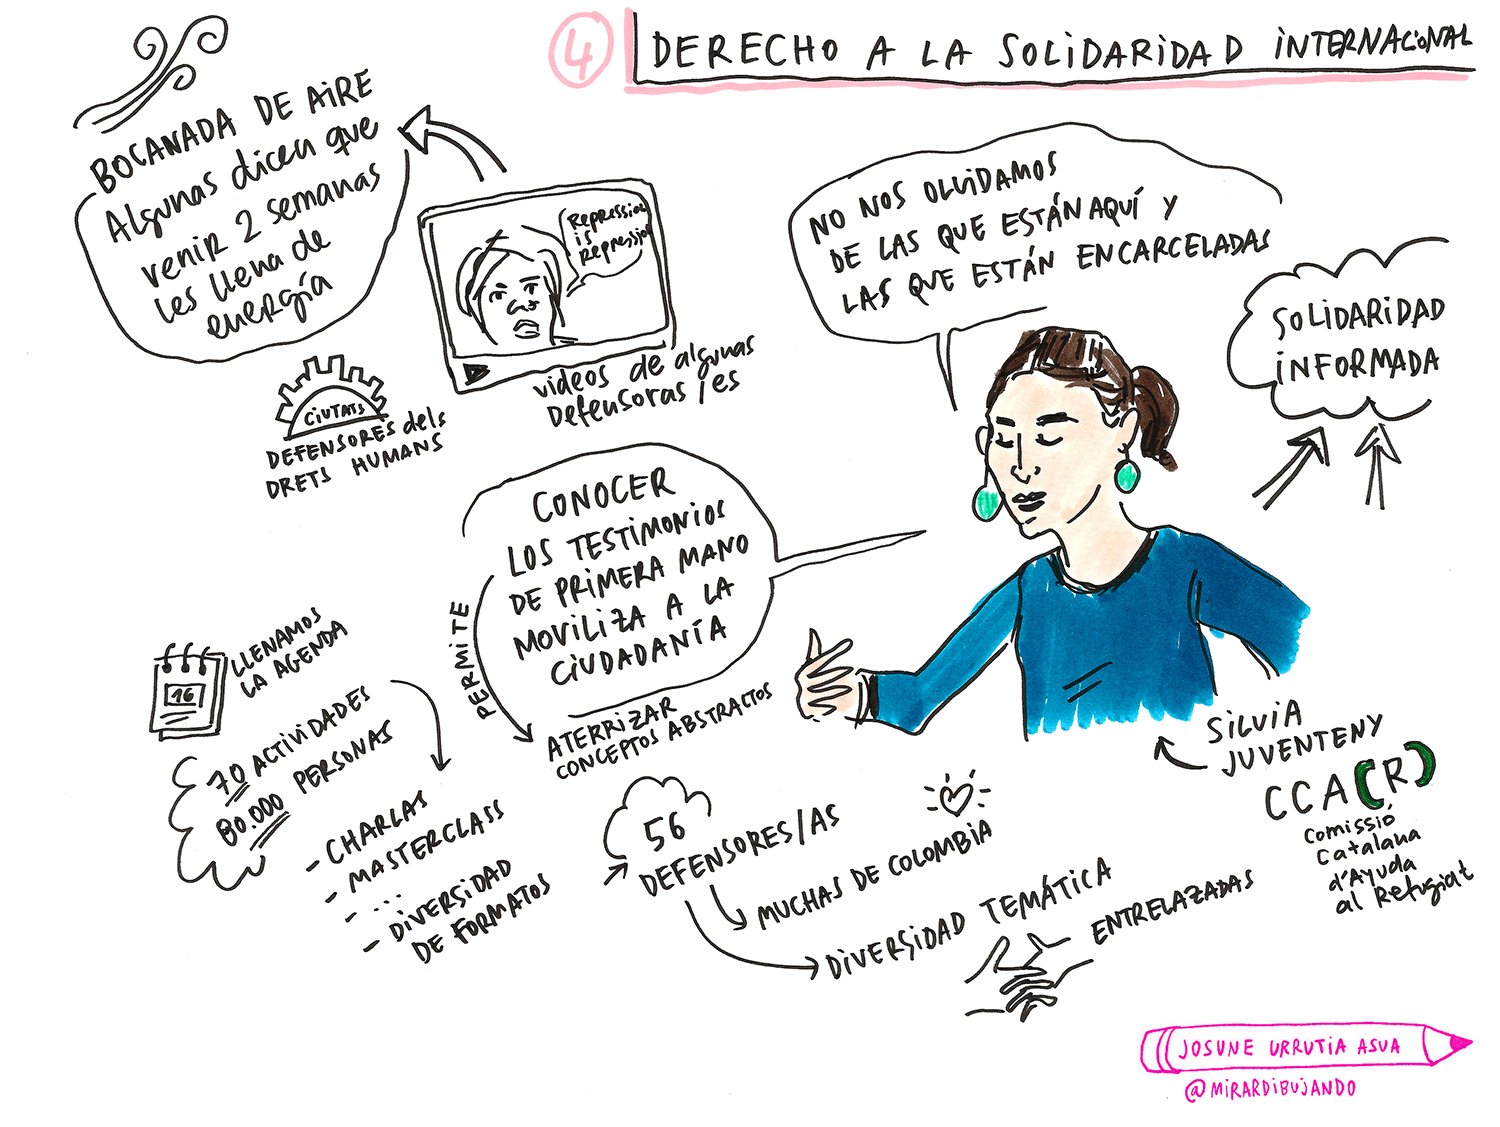 4
DERECHO A LA SOLIDARIDAD INTERNACIONAL
BOCANADA DE AIRE
Algunas dicen que
venir 2 semanas
les llena de
energía
Repression
is
Repression
videos de algunas
Defensoras/es
CIUTATS
DEFENSORES dels
DRETS HUMANS
NO NOS OLVIDAMOS
DE LAS QUE ESTÁN AQUÍ Y
LAS QUE ESTÁN ENCARCELADAS
SOLIDARIDAD
INFORMADA
CONOCER
LOS TESTIMONIOS
DE PRIMERA MANO
MOVILIZA A LA
CIUDADANÍA
PERMITE
ATERRIZAR
CONCEPTOS ABSTRACTOS
16
LLENAMOS
LA AGENDA
70 ACTIVIDADES
80.000 PERSONAS
- CHARLAS
- MASTERCLASS
- ...
- DIVERSIDAD
DE FORMATOS
56
DEFENSORES/AS
MUCHAS DE COLOMBIA
DIVERSIDAD TEMÁTICA
ENTRELAZADAS
SILVIA
JUVENTENY
CCA(R)
Comissió
Catalana
d'Ayuda
al Refugiat
JOSUNE URRUTIA ASUA
@MIRARDIBUJANDO